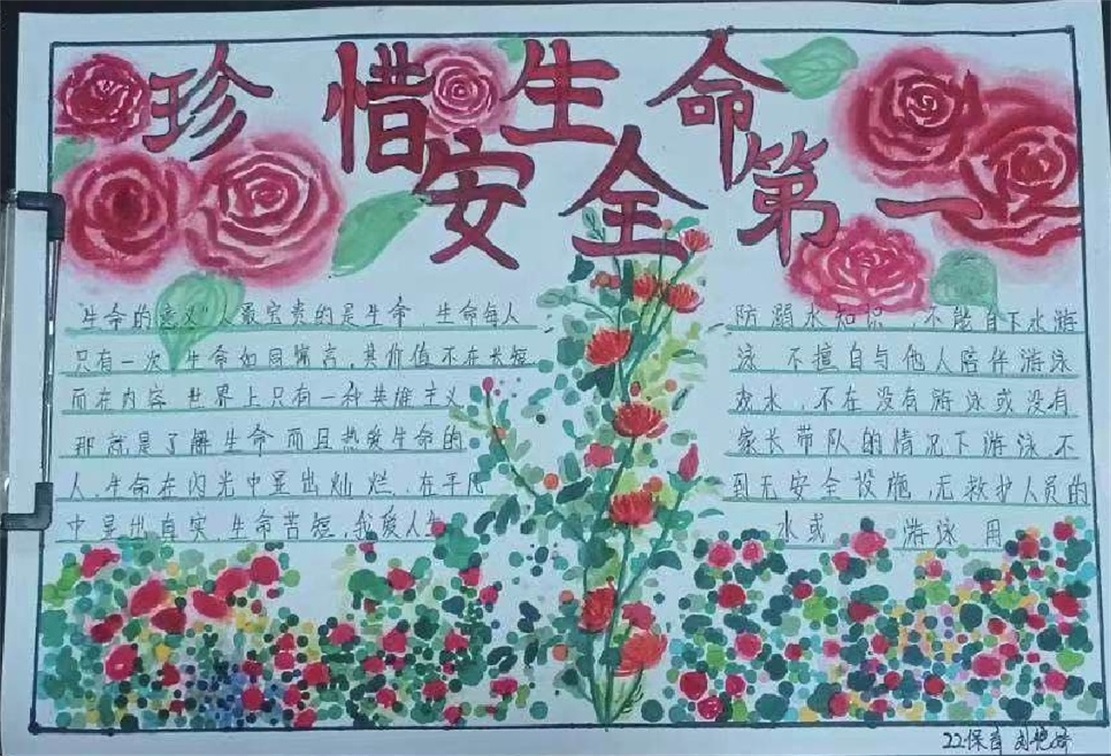 珍惜生命
安全第一
"生命的意义"人最宝贵的是生命 生命每人
只有一次 生命如同寓言,其价值不在长短
而在内容 世界上只有一种英雄主义
那就是了解生命而且热爱生命的
人、生命在闪光中显出灿烂、在平凡
中显出真实 生命苦短,我爱人生
防溺水知识,不能自下水游
泳 不擅自与他人陪伴游泳
戏水,不在没有游泳或没有
家长带队的情况下游泳、不
到无安全设施,无救护人员的
水或 游泳 用
22保育